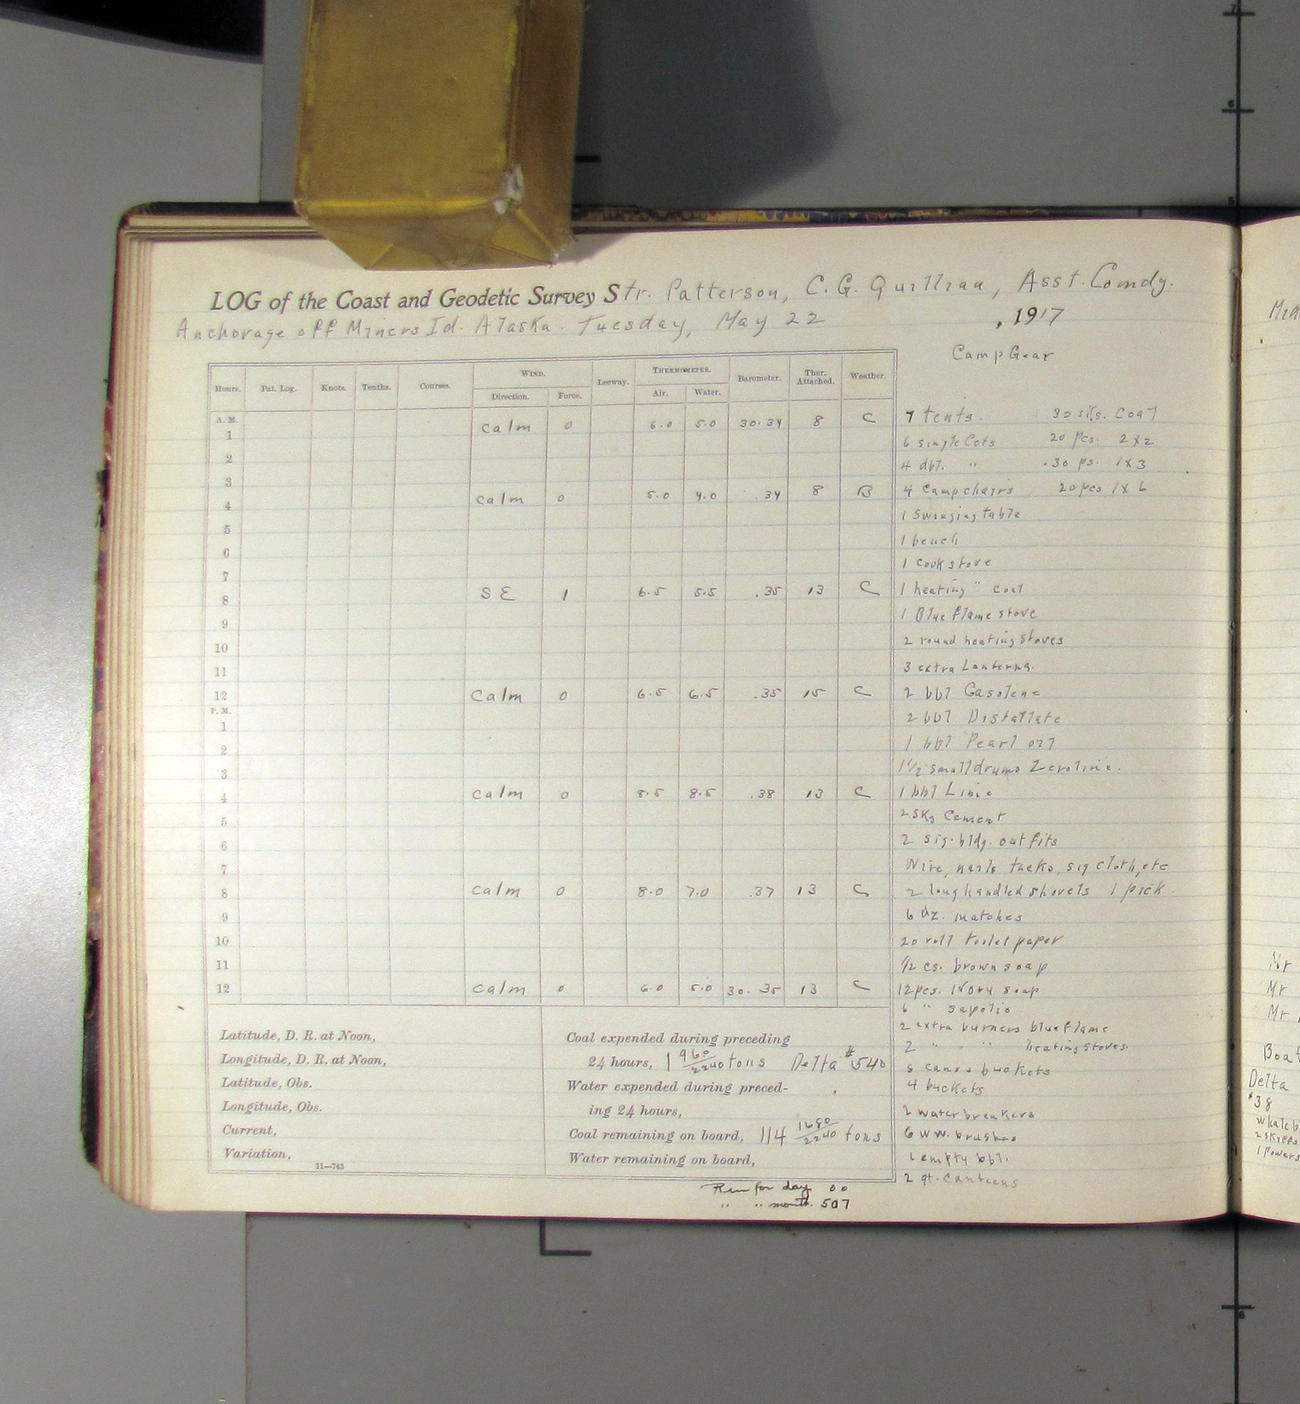 LOG of the Coast and Geodetic Survey Str. Patterson, C. G. Quillian, Asst. Comdg.
Anchorage off Miners Id. Alaska. Tuesday, May 22, 1917
Camp Gear
Hours. Pat. Log. Knots. Tenths. Courses. WIND. Leeway. THERMOMETER. Barometer. Ther. Attached. Weather.
Direction. Force. Air. Water.
A. M.
1 Calm 0 6.0 5.0 30.34 8 C
2
3
4 Calm 0 5.0 4.0 .34 8 B
5
6
7
8 SE 1 6.5 5.5 .35 13 C
9
10
11
12 Calm 0 6.5 6.5 .35 15 C
P. M.
1
2
3
4 Calm 0 8.5 8.5 .38 13 C
5
6
7
8 Calm 0 8.0 7.0 .37 13 C
9
10
11
12 Calm 0 6.0 5.0 30.35 13 C
7 tents. 30 sks. Coal
6 single Cots 20 pcs. 2x2
4 dbl. " 30 ps. 1x3
4 Camp chairs 20 pcs 1x6
1 Swinging table
1 bench
1 Cook stove
1 heating " coal
1 Blue flame stove
2 round heating stoves
3 extra Lanterns.
2 bbl Gasolene
2 bbl Distallate
1 bbl Pearl oil
1 1/2 small drums Zeroline.
1 bbl Lime
2 sks Cement
2 sig. bldg. outfits
Wire, nails tacks, sig cloth, etc
2 long handled shovels 1 pick
6 dz. matches
20 roll toilet paper
1/2 cs. brown soap
12 pcs. Ivory soap
6 " sapolio
2 extra burners blue flame
2 " " " heating stoves.
5 canvas buckets
4 buckets
2 water breakers
6 W.W. brushes
1 empty bbl.
2 qt. canteens
Latitude, D. R. at Noon,
Longitude, D. R. at Noon,
Latitude, Obs.
Longitude, Obs.
Current,
Variation,
11—743
Coal expended during preceding
24 hours, 1 960/2240 tons Delta #540
Water expended during preced-
ing 24 hours,
Coal remaining on board, 114 1680/2240 tons
Water remaining on board,
Run for day 00
" " month. 507
Mr
Mr
Boat
Delta
#38